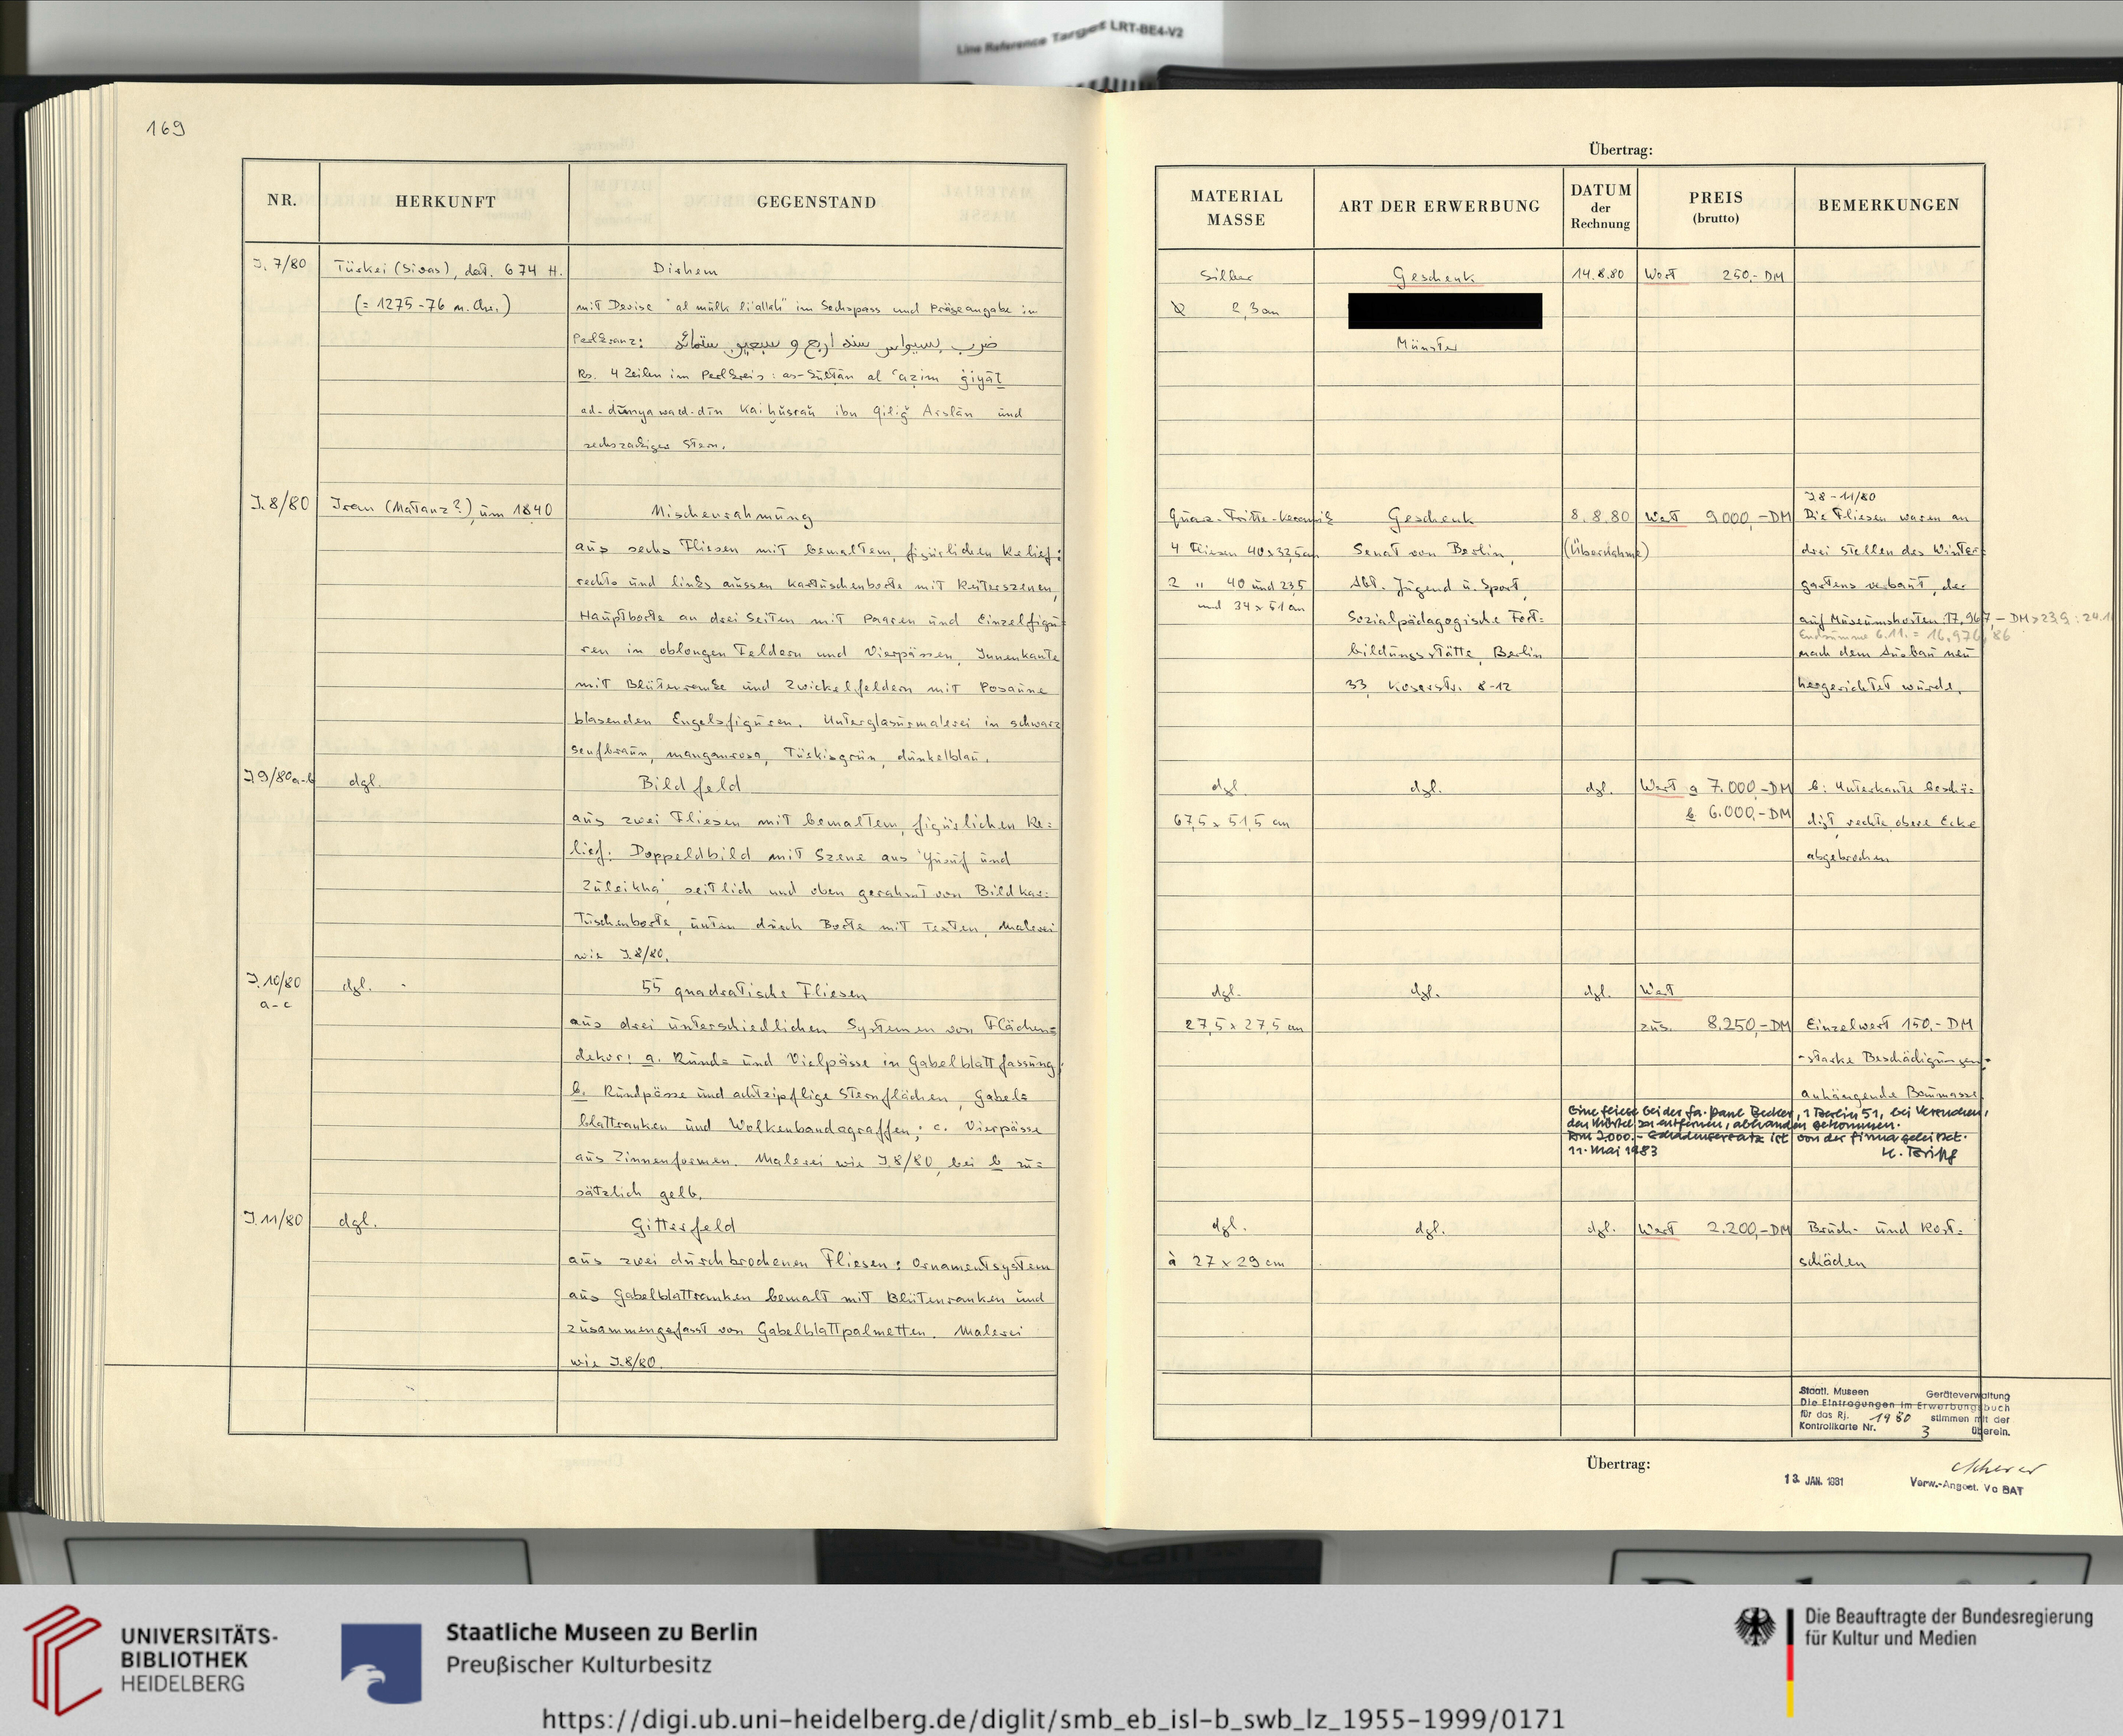 Line Reference Target LRT-BE4-V2
169
NR.
HERKUNFT
GEGENSTAND
J. 7/80
Türkei (Sivas), dat. 674 H.
(= 1275-76 n. Chr.)
Dirhem
mit Devise "al mülk li'allah" im Sechspass und Prägeangabe im
Perlkranz: ضرب بسيواس سنة اربع و سبعين ستمائة
Rs. 4 Zeilen im Perlkreis: as-Sultān al ʿaẓim ġiyāṯ
ad-dünya wad-din Kaiḫusrau ibn Qiliǧ Arslān und
sechszackiger Stern.
J.8/80
Iran (Mätanz?), um 1840
Nischenrahmung
aus sechs Fliesen mit bemaltem, figürlichen Relief:
rechts und links aussen Kartuschenborte mit Reiterszenen,
Hauptborte an drei Seiten mit Paaren und Einzelfigu=
ren in oblongen Feldern und Vierpässen, Innenkante
mit Blütenranke und Zwickelfeldern mit Posaune
blasenden Engelsfiguren. Unterglasurmalerei in schwarz
senfbraun, manganrosa, Türkisgrün, dunkelblau.
J.9/80a-b
dgl.
Bildfeld
aus zwei Fliesen mit bemaltem, figürlichen Re=
lief: Doppeldbild mit Szene aus 'Yusuf und
Zuleikha' seitlich und oben gerahmt von Bildkar=
tuschenborte, unten durch Borte mit Texten, Malerei
wie J.8/80.
J.10/80
a-c
dgl.
55 quadratische Fliesen
aus drei unterschiedlichen Systemen von Flächen=
dekor: a. Rund= und Vielpässe in Gabelblattfassung;
b. Rundpässe und achtzipflige Sternflächen, Gabel=
blattranken und Wolkenbandagraffen; c. Vierpässe
aus Zinnenformen. Malerei wie J.8/80, bei b zu=
sätzlich gelb.
J.11/80
dgl.
Gitterfeld
aus zwei durchbrochenen Fliesen: Ornamentsystem
aus Gabelblattranken bemalt mit Blütenranken und
zusammengefasst von Gabelblattpalmetten. Malerei
wie J.8/80.
Übertrag:
MATERIAL
MASSE
ART DER ERWERBUNG
DATUM
der
Rechnung
PREIS
(brutto)
BEMERKUNGEN
Silber
Ø 2,3 cm
Geschenk
Münster
14.8.80
Wert 250,- DM
Quarz-Fritte-Keramik
4 Fliesen 40x32,5cm
2 " 40 und 23,5
und 34 x 51 cm
Geschenk
Senat von Berlin,
Abt. Jugend u. Sport,
Sozialpädagogische Fort=
bildungsstätte, Berlin
33, Koserstr. 8-12
8.8.80
(Übernahme)
Wert 9.000,-DM
J.8-11/80
Die Fliesen waren an
drei Stellen des Winter=
gartens verbaut, der
auf Museumskosten: 17.967,- DM > 23.9.: 24.1
Endsumme 6.11. = 16.976,86
nach dem Ausbau neu
hergerichtet wurde.
dgl.
67,5 x 51,5 cm
dgl.
dgl.
Wert a 7.000,-DM
b 6.000,-DM
b: Unterkante beschä=
digt, rechte obere Ecke
abgebrochen
dgl.
27,5 x 27,5 cm
dgl.
dgl.
Wert
zus. 8.250,-DM
Einzelwert 150,- DM
- starke Beschädigungen -
anhängende Baumasse
Eine Fliese bei der Fa. Paul Becker, 1 Berlin 51, bei Versuchen,
den Mörtel zu entfernen, abhanden gekommen.
DM 2.000.- Schadensersatz ist von der Firma geleistet.
11. Mai 1983
K. Brisch
dgl.
à 27 x 29 cm
dgl.
dgl.
Wert 2.200,-DM
Bruch- und Rost=
schäden
Staatl. Museen Geräteverwaltung
Die Eintragungen im Erwerbungsbuch
für das Rj. 1980 stimmen mit der
Kontrollkarte Nr. 3 überein.
Übertrag:
13. JAN. 1981
Scherer
Verw.-Angest. Vc BAT
UNIVERSITÄTS-
BIBLIOTHEK
HEIDELBERG
Staatliche Museen zu Berlin
Preußischer Kulturbesitz
Die Beauftragte der Bundesregierung
für Kultur und Medien
https://digi.ub.uni-heidelberg.de/diglit/smb_eb_isl-b_swb_lz_1955-1999/0171